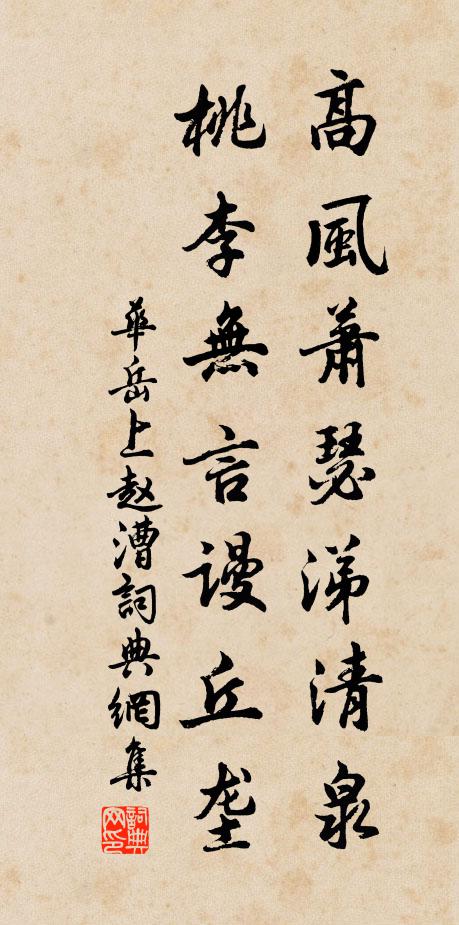 高風蕭瑟涕清泉
桃李無言謾丘垄
華岳上赵漕詞典網集
詞典网印